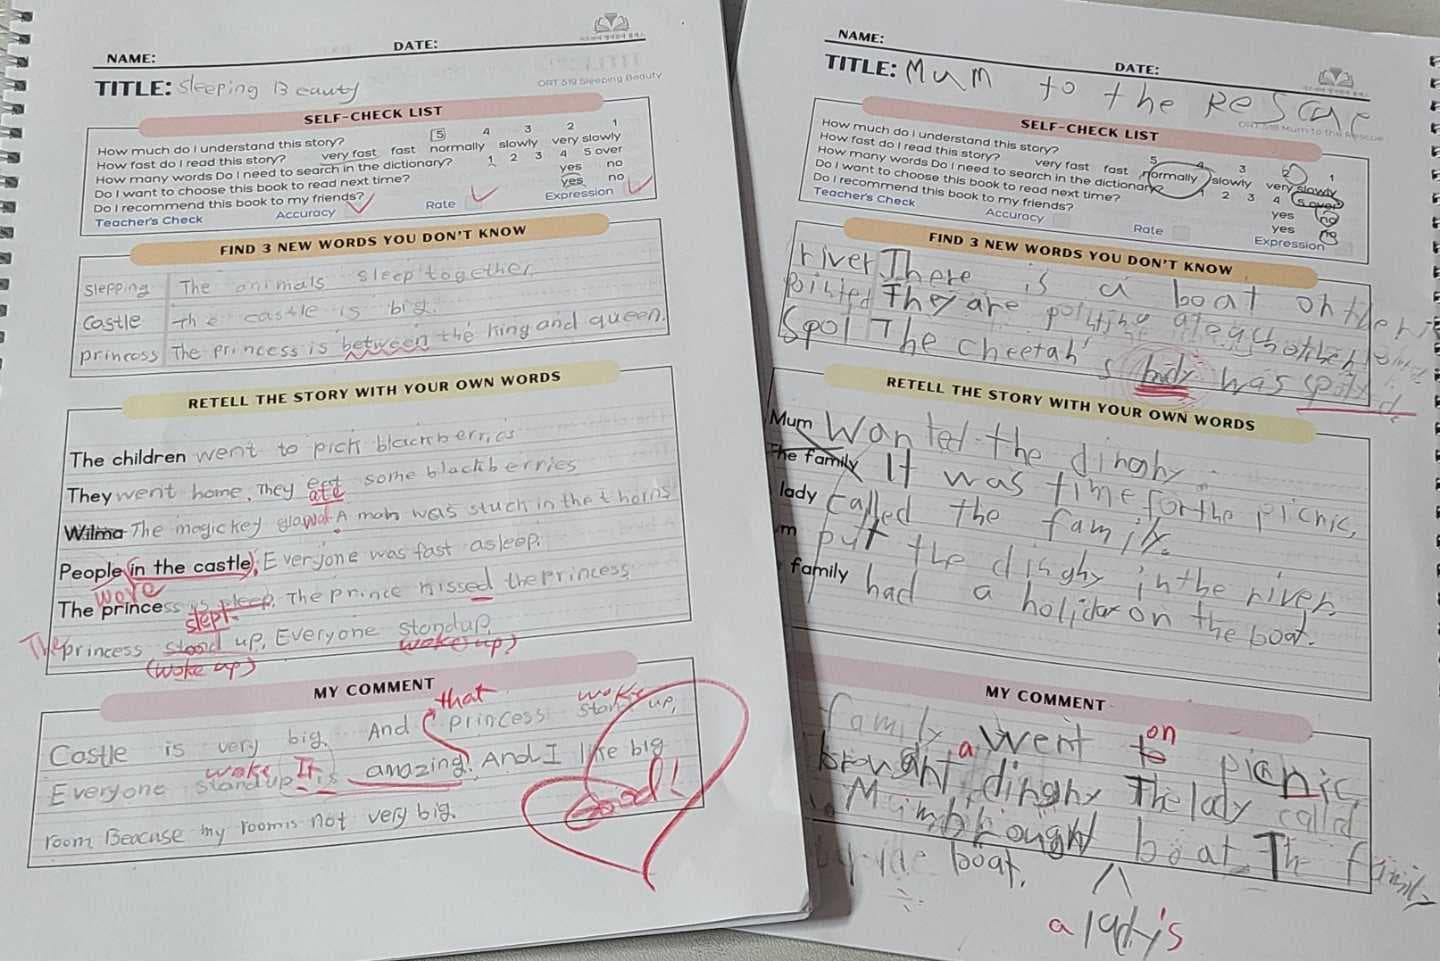 NAME:
DATE:
TITLE: Sleeping Beauty
ORT 519 Sleeping Beauty
SELF-CHECK LIST
How much do I understand this story? 5 4 3 2 1
How fast do I read this story? very fast fast normally slowly very slowly
How many words Do I need to search in the dictionary? 1 2 3 4 5 over
Do I want to choose this book to read next time? yes no
Do I recommend this book to my friends? yes no
Teacher's Check Accuracy Rate Expression
FIND 3 NEW WORDS YOU DON'T KNOW
slepping The animals sleep together.
Castle the castle is big.
princess The Princess is between the king and queen.
RETELL THE STORY WITH YOUR OWN WORDS
The children went to pick blackberries
They went home. They eat some blackberries
ate
Wilma The magic key glowed. A man was stuck in the thorns
People in the castle, Everyone was fast asleep.
were
The princess is sleep. The Prince missed the Princess
slept
The princess stood up, Everyone standup.
(woke up) (woke up)
MY COMMENT
that woke
Castle is very big. And princess stand up,
woke It
Everyone standup is amazing. And I like big
room Beacuse my room is not very big.
Good!
NAME:
DATE:
TITLE: Mum to the Rescue
ORT 518 Mum to the Rescue
SELF-CHECK LIST
How much do I understand this story? 5 4 3 2 1
How fast do I read this story? very fast fast normally slowly very slowly
How many words Do I need to search in the dictionary? 1 2 3 4 5 over
Do I want to choose this book to read next time? yes no
Do I recommend this book to my friends? yes no
Teacher's Check Accuracy Rate Expression
FIND 3 NEW WORDS YOU DON'T KNOW
river There is a boat on the
pointed They are pointing
Spol The cheetah's body was spotted.
RETELL THE STORY WITH YOUR OWN WORDS
Mum Wanted the dinghy.
The family It was time for the picnic.
lady called the family.
put the dinghy in the river.
family had a holiday on the boat.
MY COMMENT
family went to picnic,
on
brought a dinghy The lady called
Mum brought boat The family
boat.
a lady's